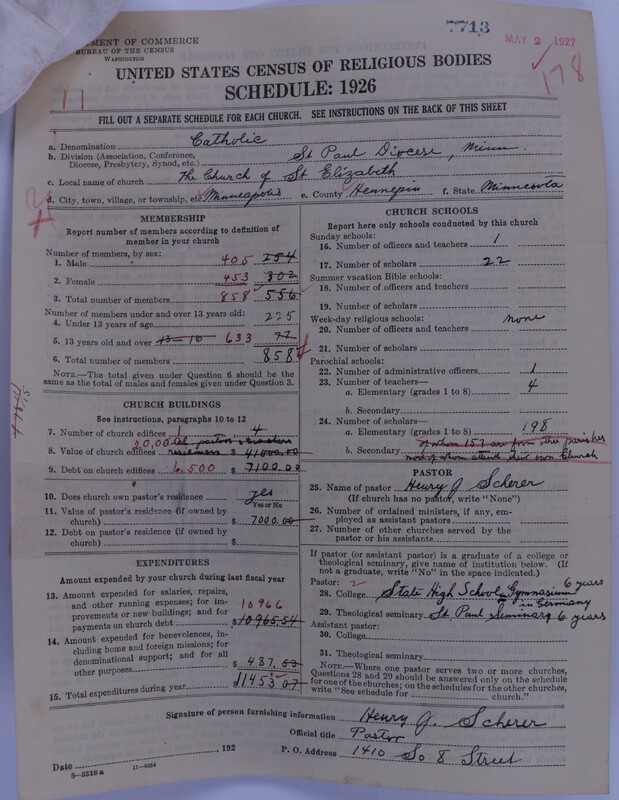 7713
MAY 2 1927
178
TMENT OF COMMERCE
BUREAU OF THE CENSUS
WASHINGTON
UNITED STATES CENSUS OF RELIGIOUS BODIES
SCHEDULE: 1926
11
FILL OUT A SEPARATE SCHEDULE FOR EACH CHURCH. SEE INSTRUCTIONS ON THE BACK OF THIS SHEET
a. Denomination Catholic
b. Division (Association, Conference, Diocese, Presbytery, Synod, etc.) St Paul Diocese, Minn.
c. Local name of church The Church of St Elizabeth
d. City, town, village, or township, etc. Minneapolis e. County Hennepin f. State Minnesota
MEMBERSHIP
Report number of members according to definition of
member in your church
Number of members, by sex:
1. Male 405 254
2. Female 453 302
3. Total number of members 858 556
Number of members under and over 13 years old:
4. Under 13 years of age 225
5. 13 years old and over 13-16 633 77
6. Total number of members 858
NOTE.—The total given under Question 6 should be the
same as the total of males and females given under Question 3.
CHURCH BUILDINGS
See instructions, paragraphs 10 to 12
7. Number of church edifices 1 4
pastor's
8. Value of church edifices residence $ 41000.00
9. Debt on church edifices 6,500 $ 7100.00
10. Does church own pastor's residence yes
Yes or No
11. Value of pastor's residence (if owned by
church) $ 7000.00
12. Debt on pastor's residence (if owned by
church) $
EXPENDITURES
Amount expended by your church during last fiscal year
13. Amount expended for salaries, repairs,
and other running expenses; for im-
provements or new buildings; and for
payments on church debt 10966 $ 10965.54
14. Amount expended for benevolences, in-
cluding home and foreign missions; for
denominational support; and for all
other purposes $ 487.53
15. Total expenditures during year $11453.07
CHURCH SCHOOLS
Report here only schools conducted by this church
Sunday schools:
16. Number of officers and teachers 1
17. Number of scholars 22
Summer vacation Bible schools:
18. Number of officers and teachers
19. Number of scholars
Week-day religious schools: none
20. Number of officers and teachers
21. Number of scholars
Parochial schools:
22. Number of administrative officers 1
23. Number of teachers—
a. Elementary (grades 1 to 8) 4
b. Secondary
24. Number of scholars—
a. Elementary (grades 1 to 8) 198
of whom 157 are from other parishes
b. Secondary most of whom attend their own Church
PASTOR
25. Name of pastor Henry J Scherer
(If church has no pastor, write "None")
26. Number of ordained ministers, if any, em-
ployed as assistant pastors
27. Number of other churches served by the
pastor or his assistants
If pastor (or assistant pastor) is a graduate of a college or
theological seminary, give name of institution below. (If
not a graduate, write "No" in the space indicated.)
Pastor: 2
28. College State High School - Gymnasium 6 years
in Germany
29. Theological seminary St Paul Seminary 6 years
Assistant pastor:
30. College
31. Theological seminary
NOTE.—Where one pastor serves two or more churches,
Questions 28 and 29 should be answered only on the schedule
for one of the churches; on the schedules for the other churches,
write "See schedule for church."
Signature of person furnishing information Henry J. Scherer
Official title Pastor
Date , 192 P. O. Address 1410 So 8 Street
8-5518a 11-9064